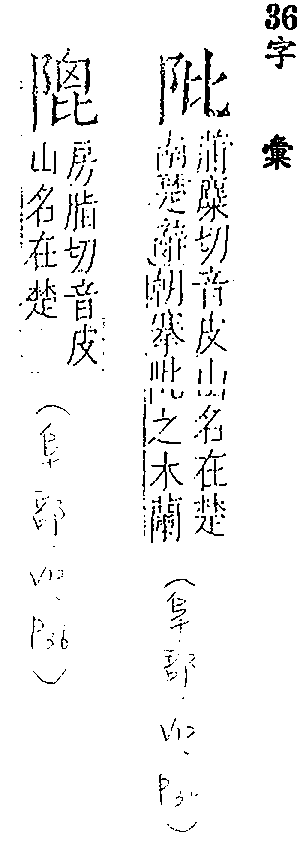 36字 彙
阰
蒲麋切音皮山名在楚
南楚辭朝搴阰之木蘭
(阜部.V12、
房脂切音皮
山名在楚
(阜部.V12、P36)